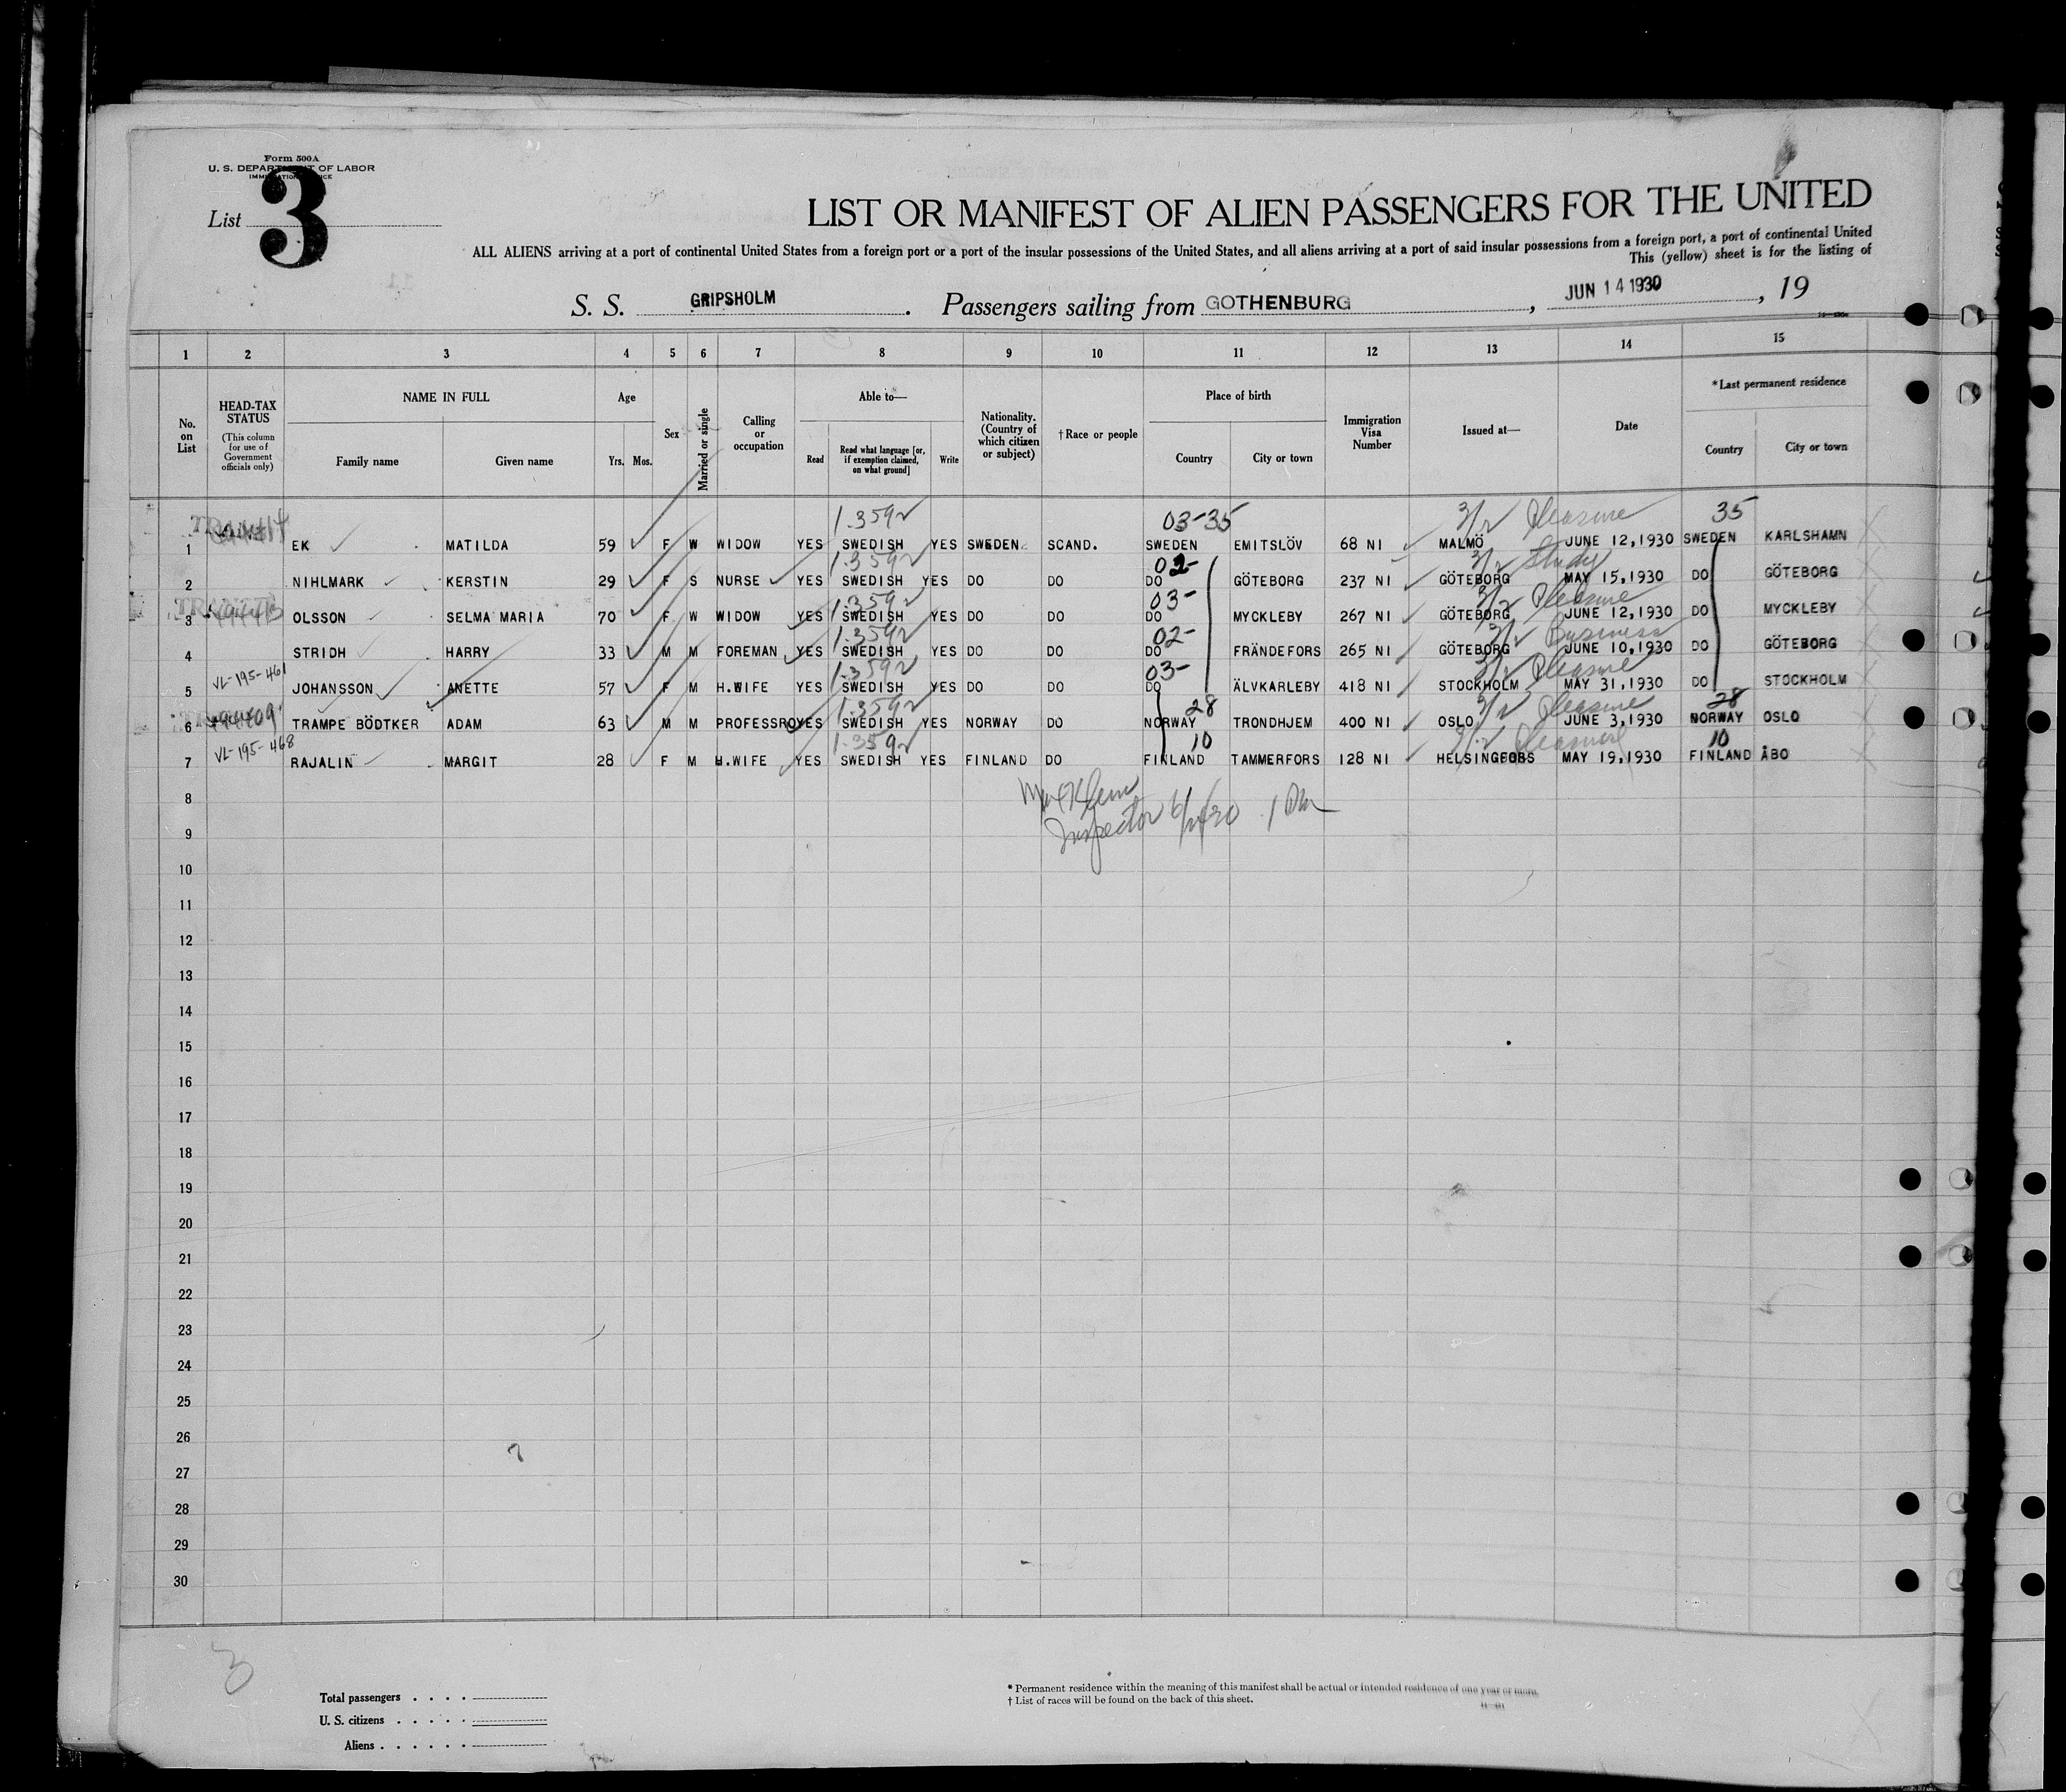 Form 500A
U. S. DEPARTMENT OF LABOR
List 3
LIST OR MANIFEST OF ALIEN PASSENGERS FOR THE UNITED
ALL ALIENS arriving at a port of continental United States from a foreign port or a port of the insular possessions of the United States, and all aliens arriving at a port of said insular possessions from a foreign port, a port of continental United
This (yellow) sheet is for the listing of
S. S. GRIPSHOLM . Passengers sailing from GOTHENBURG , JUN 14 1930 , 19
1 2 3 4 5 6 7 8 9 10 11 12 13 14 15
No. on List
HEAD-TAX STATUS (This column for use of Government officials only)
NAME IN FULL Family name Given name
Age Yrs. Mos.
Sex
Married or single
Calling or occupation
Able to— Read Read what language [or, if exemption claimed, on what ground] Write
Nationality. (Country of which citizen or subject)
†Race or people
Place of birth Country City or town
Immigration Visa Number
Issued at—
Date
*Last permanent residence Country City or town
1.359 03-35 3/2 Pleasure 35
1 EK MATILDA 59 F W WIDOW YES SWEDISH YES SWEDEN SCAND. SWEDEN EMITSLÖV 68 NI MALMÖ JUNE 12,1930 SWEDEN KARLSHAMN
1.359 02- 3/2 Study
2 NIHLMARK KERSTIN 29 F S NURSE YES SWEDISH YES DO DO DO GÖTEBORG 237 NI GÖTEBORG MAY 15,1930 DO GÖTEBORG
1.359 03- 3/2 Pleasure
3 OLSSON SELMA MARIA 70 F W WIDOW YES SWEDISH YES DO DO DO MYCKLEBY 267 NI GÖTEBORG JUNE 12,1930 DO MYCKLEBY
1.359 02- 3/2 Business
4 STRIDH HARRY 33 M M FOREMAN YES SWEDISH YES DO DO DO FRÄNDEFORS 265 NI GÖTEBORG JUNE 10,1930 DO GÖTEBORG
VL-195-461 1.359 03- 3/2 Pleasure
5 JOHANSSON ANETTE 57 F M H.WIFE YES SWEDISH YES DO DO DO ÄLVKARLEBY 418 NI STOCKHOLM MAY 31,1930 DO STOCKHOLM
1.359 28 3/2 Pleasure 28
6 TRAMPE BÖDTKER ADAM 63 M M PROFESSRO YES SWEDISH YES NORWAY DO NORWAY TRONDHJEM 400 NI OSLO JUNE 3,1930 NORWAY OSLO
VL-195-468 1.359 10 3/2 Pleasure 10
7 RAJALIN MARGIT 28 F M H.WIFE YES SWEDISH YES FINLAND DO FINLAND TAMMERFORS 128 NI HELSINGFORS MAY 19,1930 FINLAND ÅBO
8
Inspector
9
10
11
12
13
14
15
16
17
18
19
20
21
22
23
24
25
26
27
28
29
30
3
Total passengers . . . .
U. S. citizens . . . . .
Aliens . . . . . .
* Permanent residence within the meaning of this manifest shall be actual or intended residence of one year or more.
† List of races will be found on the back of this sheet.